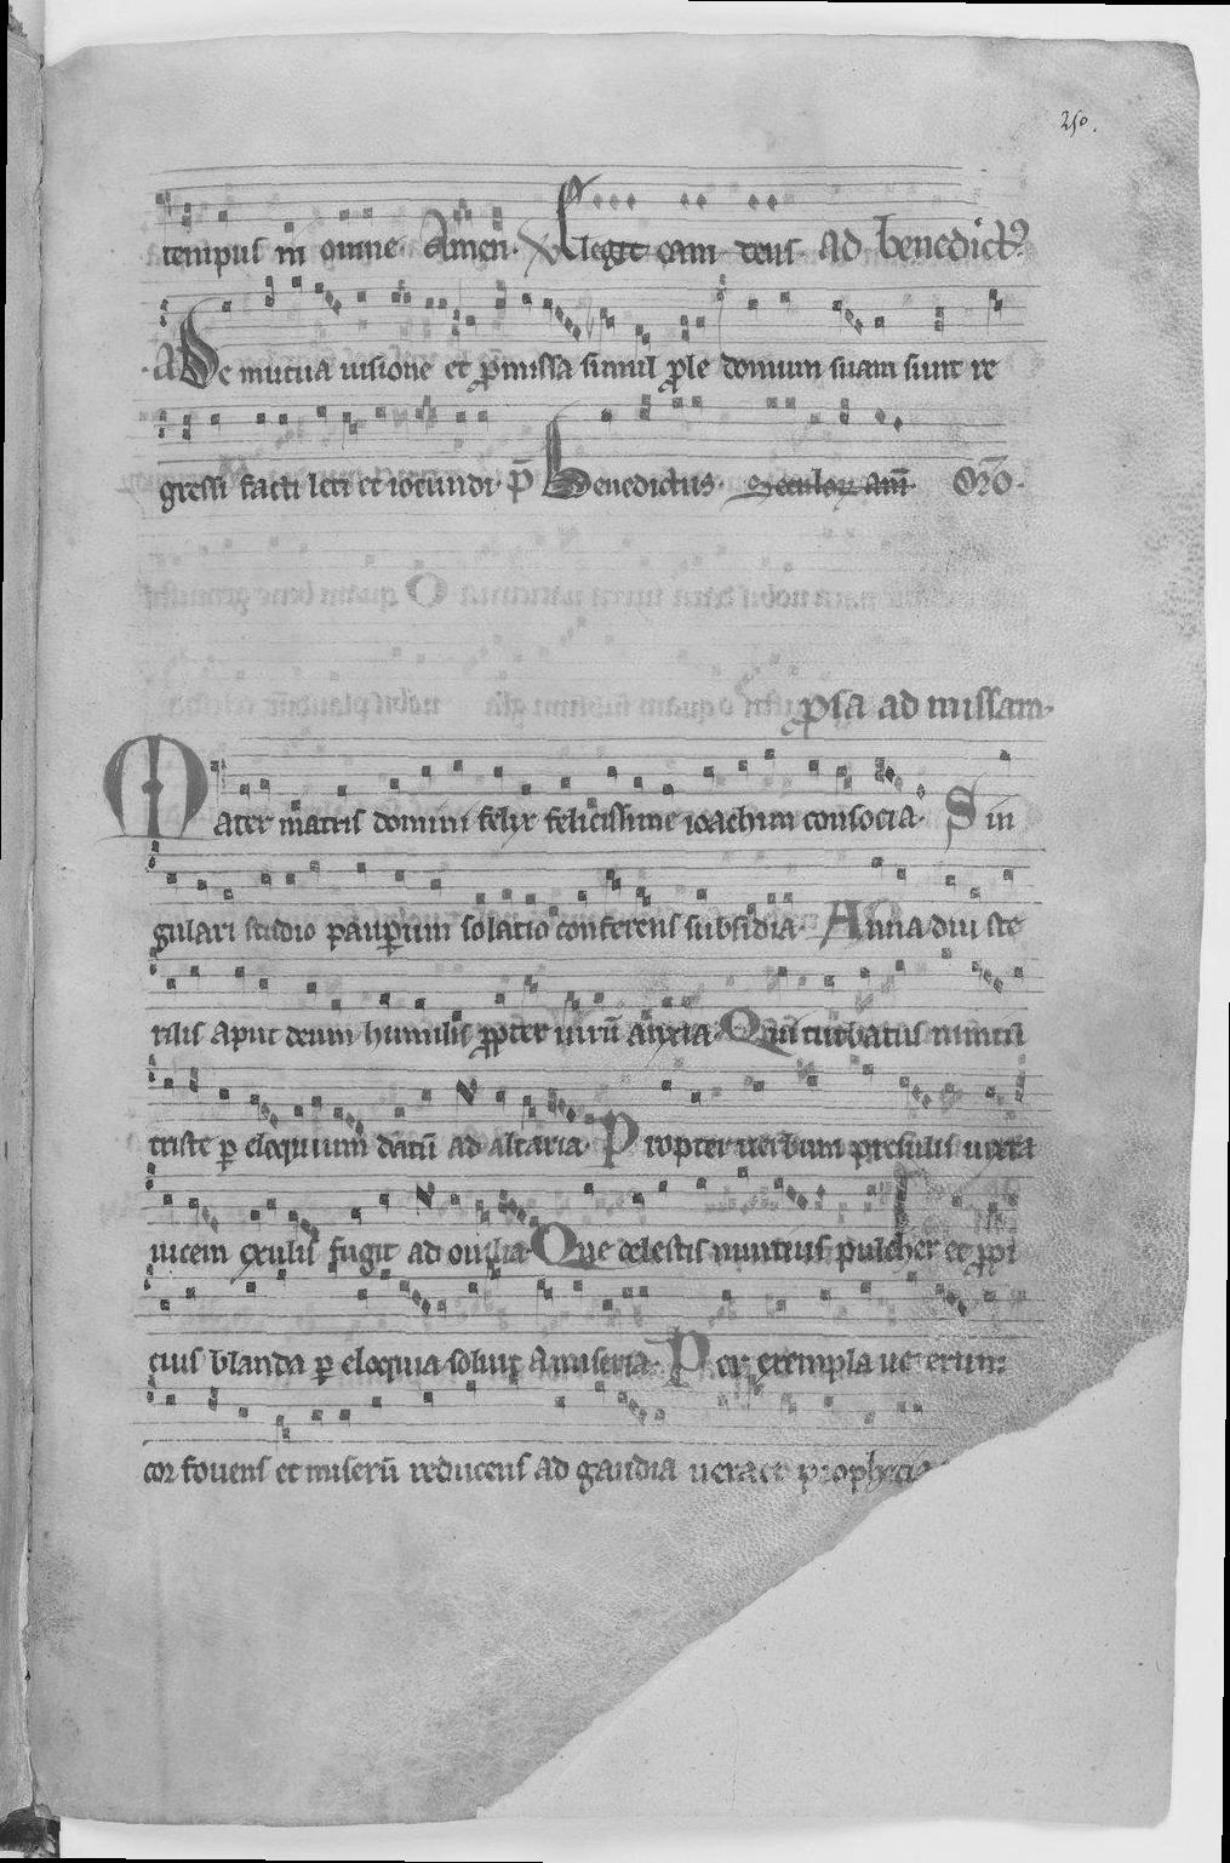 250.
tempus in omne. Amen. Elegit eam deus. ad benedictꝰ
a De mutua uisione et p̄missa simul ꝓle domum suam sunt re
gressi facti leti et iocundi. p̄ Benedictus. Seculoꝝ am̄. Or̄o.
ꝓsa ad missam.
Mater matris domini felix felicissime ioachim consocia. Sin
gulari studio pauꝑum solatio conferens subsidia. Anna diu ste
rilis aput deum humilis ꝓpter uirū anxia. Qui turbatus nimis
triste ꝑ eloquium datū ad altaria. Propter uerbum presulis iuxta
uicem exulis fugit ad ouilia. Que celestis nuntius pulcher et ꝓpi
cius blanda ꝑ eloquia soluit a miseria. Per exempla ueterum
cor fouens et miserū reducens ad gaudia uerace prophecia